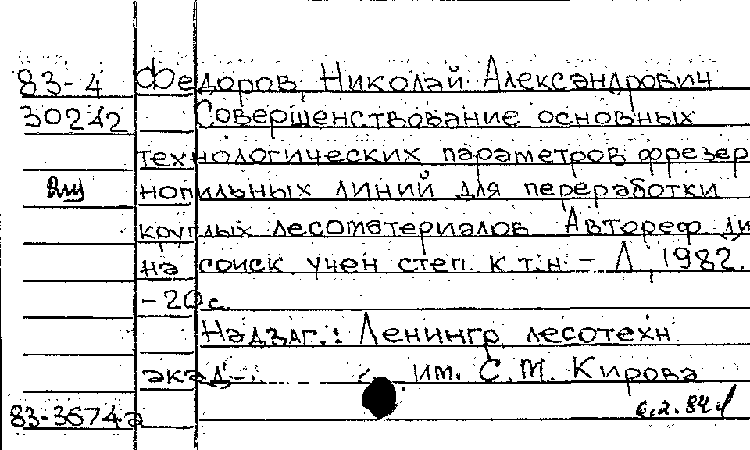 83-4 Федоров, Николай Александрович
30242 Совершенствование основных
технологических параметров фрезер
нопильных линий для переработки
круглых лесоматериалов Автореф ди
на соиск учен степ. к.т.н. - Л, 1982.
- 20 с.
Надзаг.: Ленингр лесотехн
акад. им. С.М. Кирова
83-3674а 6.2.84